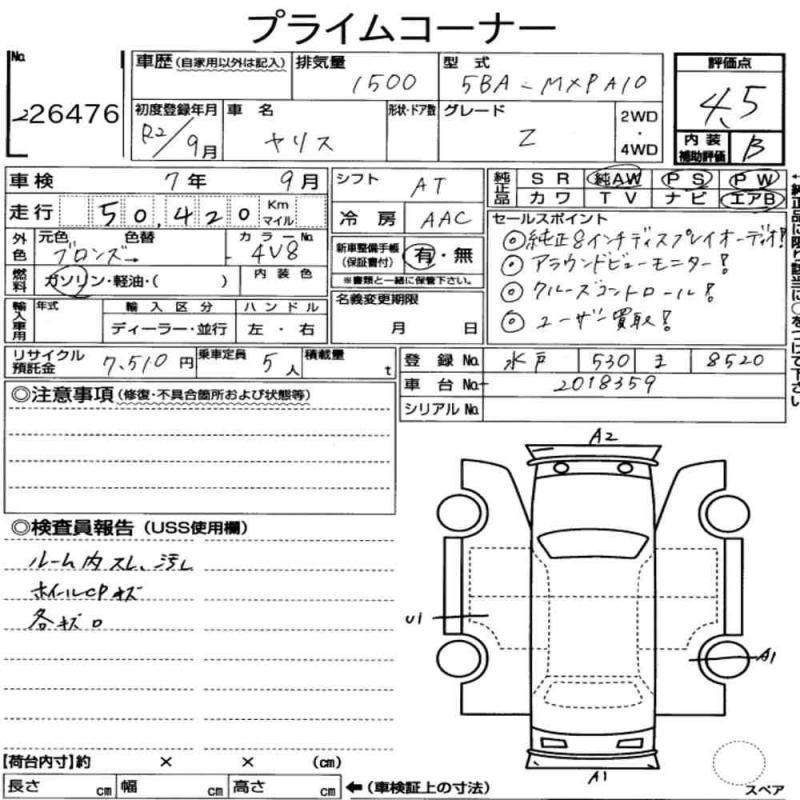 プライムコーナー
No. 26476
車歴 (自家用以外は記入) 排気量 1500 型式 5BA-MXPA10
評価点 4.5
初度登録年月 R2/9月 車名 ヤリス 形状・ドア数 グレード Z 2WD・4WD
内装補助評価 B
車検 7年 9月 シフト AT
純正品 SR 純AW PS PW
カワ TV ナビ エアB
走行 50,420 Km マイル 冷房 AAC
セールスポイント
外色 元色 ブロンズ 色替 カラーNo. 4V8
新車整備手帳(保証書付) 有・無
※書類と一緒に保管下さい。
◎純正8インチディスプレイオーディオ!
◎アラウンドビューモニター!
◎クルーズコントロール!
◎ユーザー買取!
燃料 ガソリン・軽油・( ) 内装色
名義変更期限
月 日
輸入車用 年式 輸入区分 ハンドル
ディーラー・並行 左・右
リサイクル預託金 7,510円 乗車定員 5人 積載量 t
登録No. 水戸 530 ま 8520
車台No. 2018359
シリアルNo.
◎注意事項 (修復・不具合箇所および状態等)
◎検査員報告 (USS使用欄)
ルーム内スレ、汚レ
ホイールCPキズ
各キズ
A2
U1
A1
A1
スペア
【荷台内寸】約 × × (cm)
長さ cm 幅 cm 高さ cm ←(車検証上の寸法)